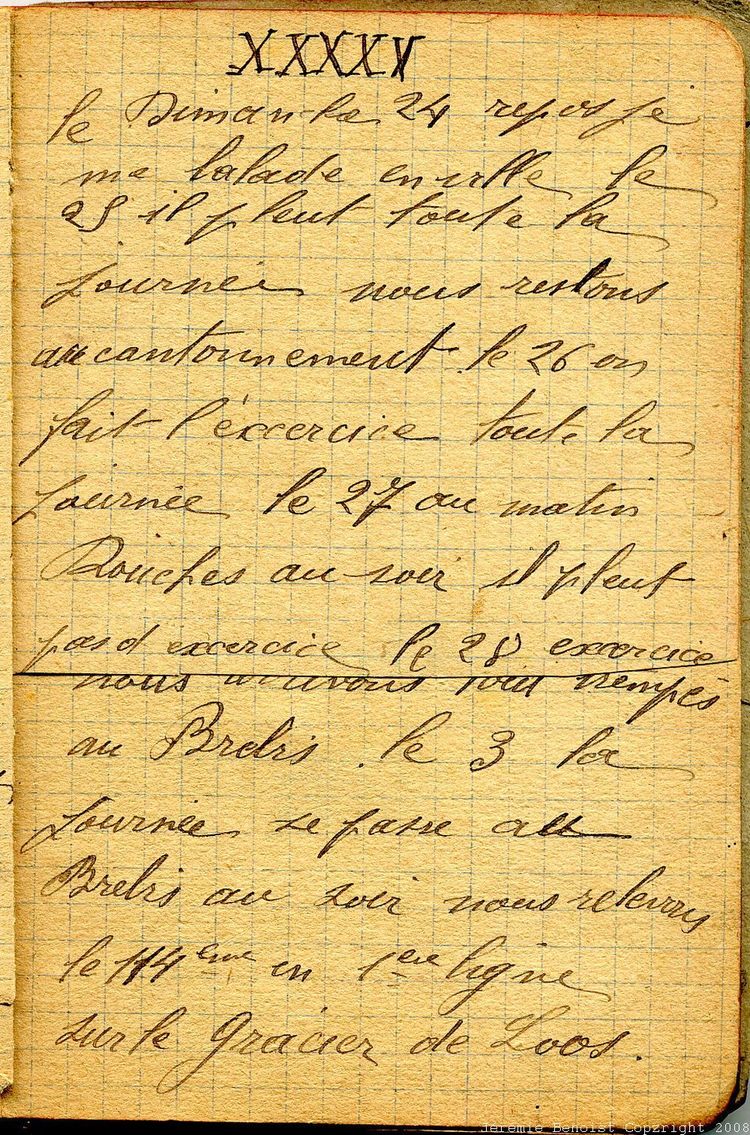 XXXXV
le Dimanche 24 repos je
me balade en ville le
25 il pleut toute la
journée nous restons
au cantonnement le 26 on
fait l'éxcercice toute la
journée le 27 au matin
Douches au soir il pleut
pas d excercice le 28 excercice
nous arrivons tout trempés
au Brebis . le 3 la
journée se passe au
Brebis au soir nous relevons
le 114eme en 1ere ligne
sur le Gracier de Loos.
Jeremie Benoist Copyright 2008